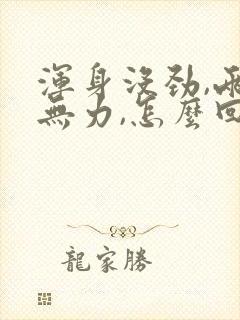 渾身沒劲,兩
無力,怎麼回
龍家勝